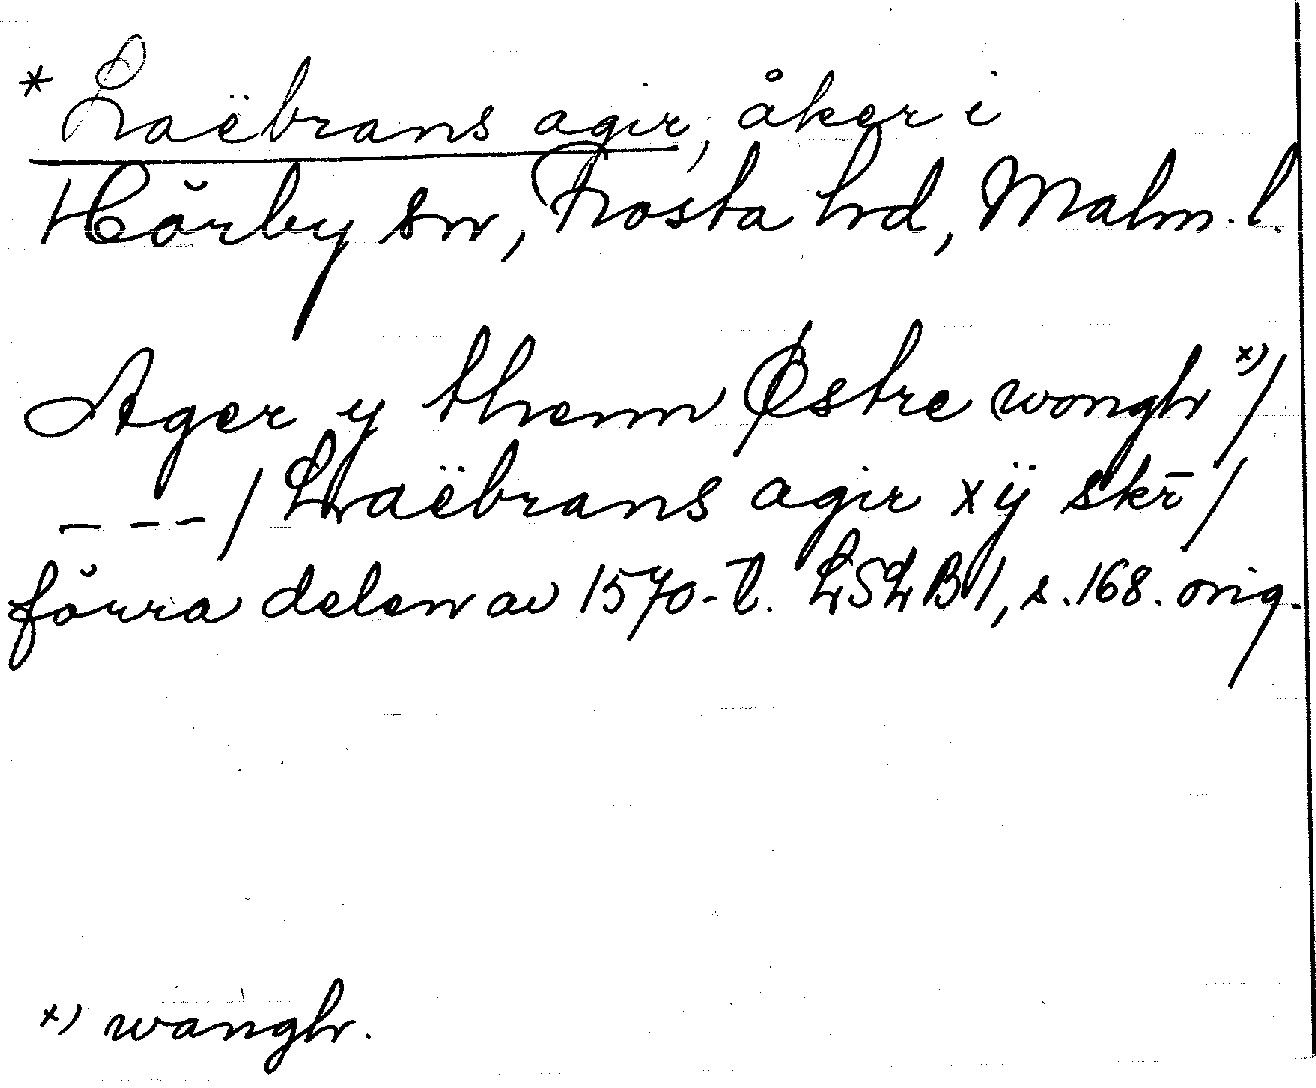 * Laëbrans agir, åker i
Hörby sn, Frosta hd, Malm. l.
Ager y them Østre wongh x)/
_ _ _ / Laëbrans agir xÿ skr̄ /
förra delen av 1570-t. LSLB 1, s. 168. orig.
x) wangh.